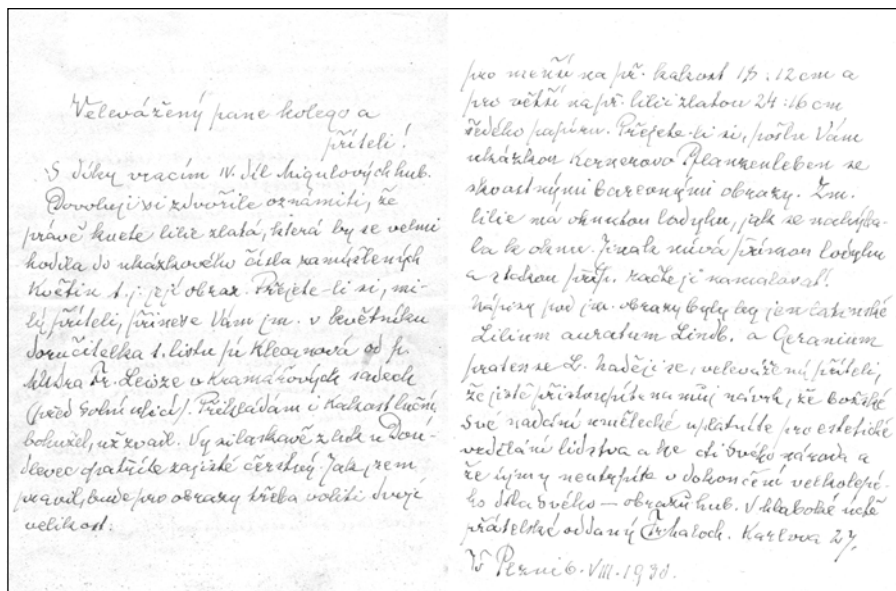 Velevážený pane kolego a
příteli!
S díky vracím IV. díl Migulových hub.
Dovoluji si zdvořile oznámiti, že
právě kvete lilie zlatá, která by se velmi
hodila do ukázkového čísla zamýšlených
Květin t. j. její obraz. Přejete-li si, mi-
lý příteli, přinese Vám jm. v květníku
doručitelka t. listu pí Kleanová od p.
Dr. v Kramářových sadech
(před Solní ulicí). Přikládám i Kakost luční,
bohužel, už zvadl. Vy si laskavě z luk u Dou-
dlevec opatříte zajisté čerstvý. Jak jsem
pravil, bude pro obrazy třeba voliti dvojí
velikost:
pro menší na př. kakost 18:12 cm a
pro větší na př. lilii zlatou 24:16 cm
šedého papíru. Přejete-li si, pošlu Vám
ukázkou Kernerovo Pflanzenleben se
skvostnými barevnými obrazy. Zm.
lilie má ohnutou lodyhu, jak se nahýba-
la k oknu. Jinak mívá přímou lodyhu
a takovou račte ji namalovat!
Nápisy pod jm. obrazy byly by jen latinské
Lilium auratum Lindb. a Geranium
pratense L. Naději se, velevážený příteli,
že jistě přistoupíte na můj návrh, že božské
své nadání umělecké uplatníte pro estetické
vzdělání lidstva a ke cti svého národa a
že újmy neutrpíte v dokončení velkolepé-
ho díla svého — obrazů hub. V hluboké úctě
přátelské oddaný Fr. Maloch. Karlova 27.
V Plzni 6. VIII. 1930.